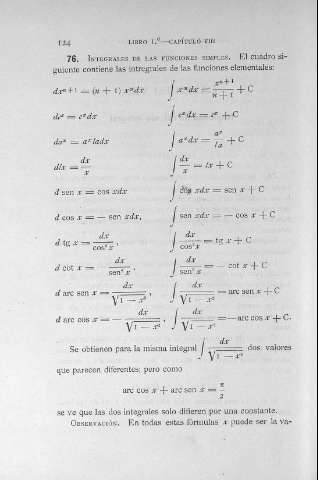 124 LIBRO I.º—CAPÍTULO VIII
76. INTEGRALES DE LAS FUNCIONES SIMPLES. El cuadro si-
guiente contiene las intregrales de las funciones elementales:
dxⁿ⁺¹ = (n + 1) xⁿdx ∫ xⁿdx = xⁿ⁺¹/(n + 1) + C
deˣ = eˣdx ∫ eˣdx = eˣ + C
daˣ = aˣladx ∫ aˣdx = aˣ/la + C
dlx = dx/x ∫ dx/x = lx + C
d sen x = cos xdx ∫ cos xdx = sen x + C
d cos x = — sen xdx, ∫ sen xdx = — cos x + C
d tg x = dx/cos² x, ∫ dx/cos² x = tg x + C
d cot x = — dx/sen² x, ∫ dx/sen² x = — cot x + C
d arc sen x = dx/√(1 — x²), ∫ dx/√(1 — x²) = arc sen x + C
d arc cos x = — dx/√(1 — x²), ∫ dx/√(1 — x²) = — arc cos x + C.
Se obtienen para la misma integral ∫ dx/√(1 — x²) dos valores
que parecen diferentes; pero como
arc cos x + arc sen x = π/2
se ve que las dos integrales solo difieren por una constante.
OBSERVACIÓN. En todas estas fórmulas x puede ser la va-